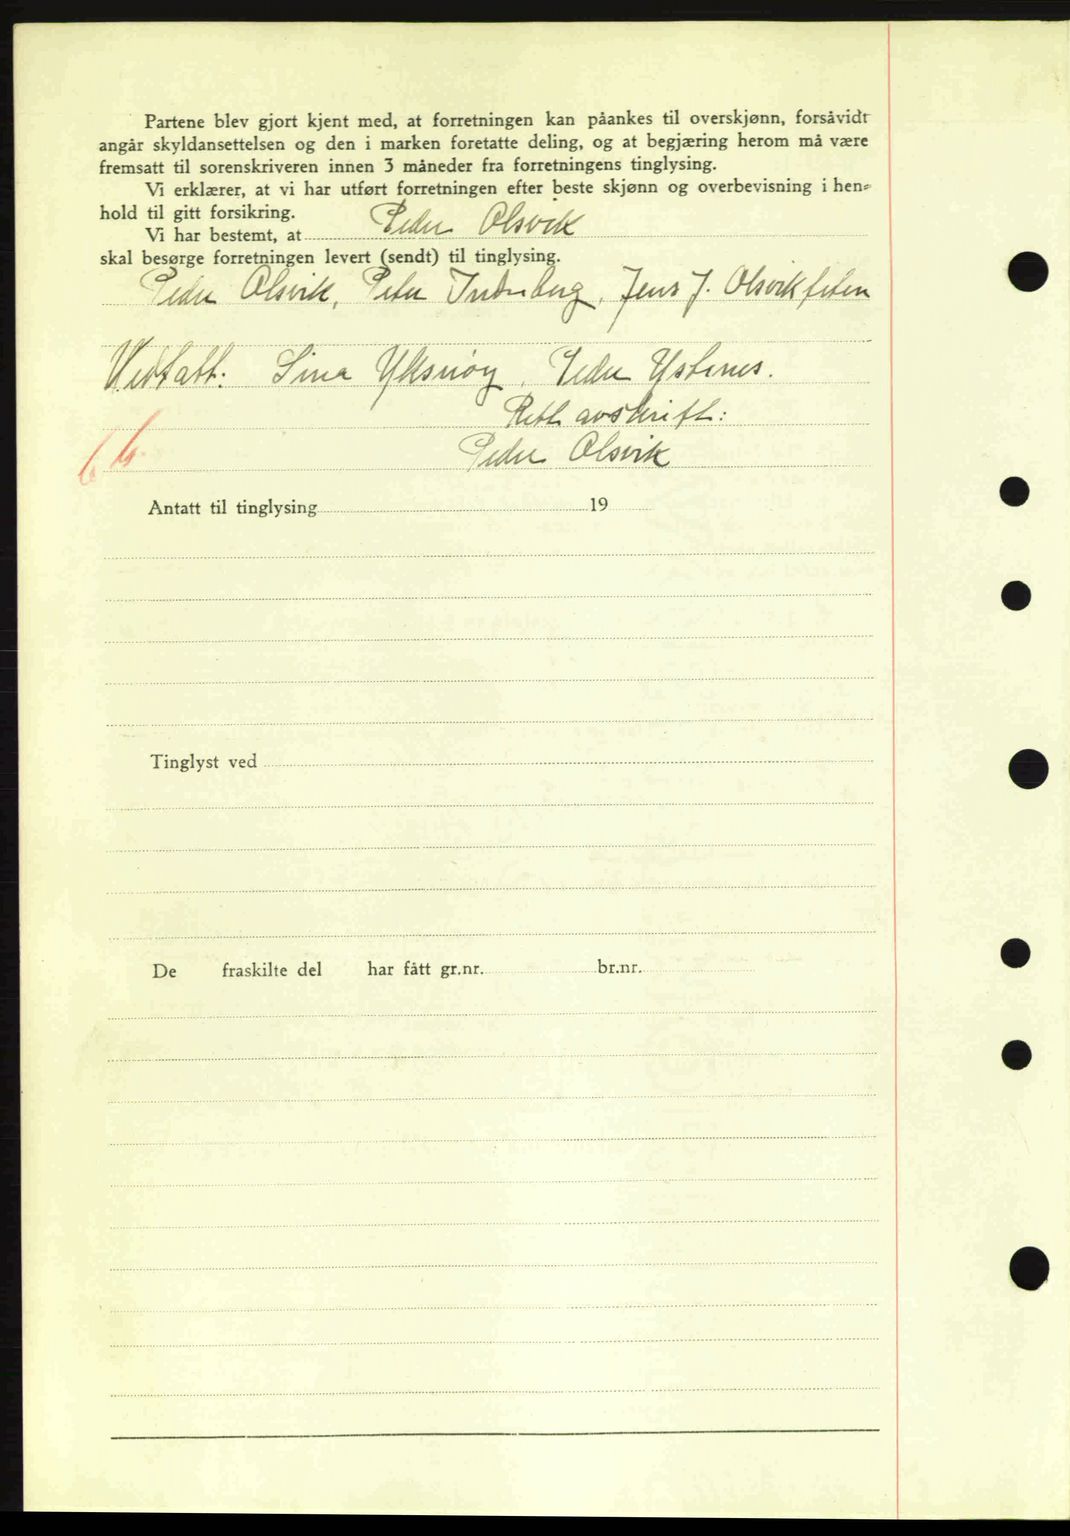 Partene blev gjort kjent med, at forretningen kan påankes til overskjønn, forsåvidt
angår skyldansettelsen og den i marken foretatte deling, og at begjæring herom må være
fremsatt til sorenskriveren innen 3 måneder fra forretningens tinglysing.
Vi erklærer, at vi har utført forretningen efter beste skjønn og overbevisning i hen-
hold til gitt forsikring.
Vi har bestemt, at Peder Olsvik
skal besørge forretningen levert (sendt) til tinglysing.
Peder Olsvik, Peter Inderberg, Jens J. Olsvikfeten
Vedtatt: Sina Yksnøy, Peder Ystenes.
Rett avskrift:
Peder Olsvik
Antatt til tinglysing 19
Tinglyst ved
De fraskilte del har fått gr.nr. br.nr.